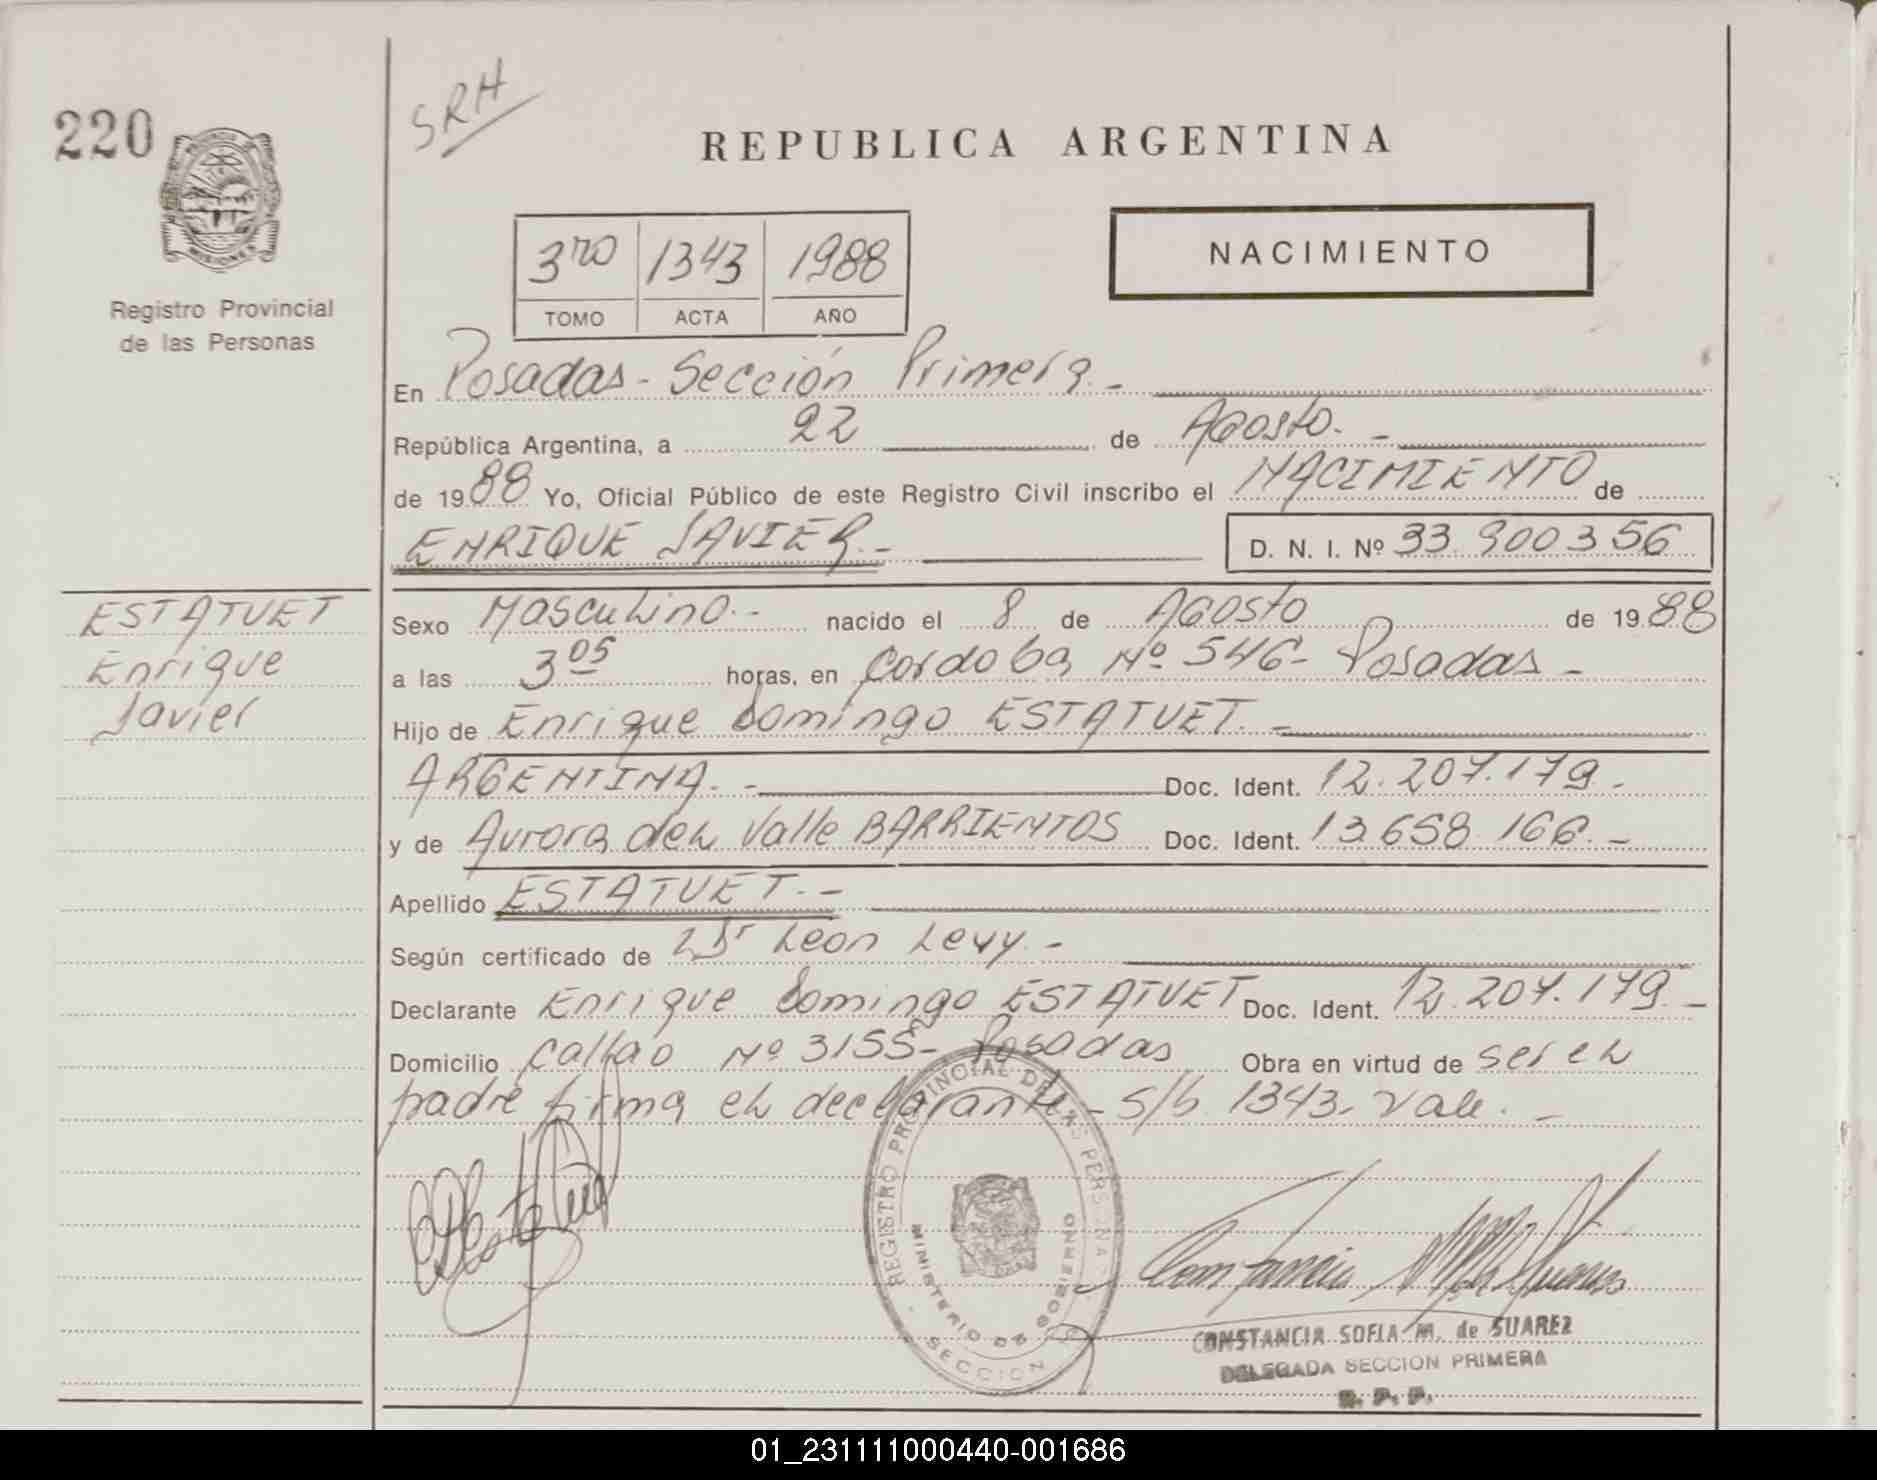 220
SRH
PROVINCIA
MISIONES
Registro Provincial
de las Personas
REPUBLICA ARGENTINA
3ro 1343 1988
TOMO ACTA AÑO
NACIMIENTO
En Posadas - Sección Primera. -
República Argentina, a 22 de Agosto. -
de 1988 Yo, Oficial Público de este Registro Civil inscribo el NACIMIENTO de
ENRIQUE JAVIER. - D. N. I. Nº 33.900356
ESTATUET
Enrique
Javier
Sexo Masculino. - nacido el 8 de Agosto de 1988
a las 3 05 horas, en Cordoba Nº 546 - Posadas -
Hijo de Enrique Domingo ESTATUET. -
ARGENTINA. - Doc. Ident. 12.207.179. -
y de Aurora del Valle BARRIENTOS Doc. Ident. 13.658.166. -
Apellido ESTATUET. -
Según certificado de Dr Leon Levy. -
Declarante Enrique Domingo ESTATUET Doc. Ident. 12.207.179. -
Domicilio Callao Nº 3155 - Posadas Obra en virtud de ser el
padre firma el declarante - S/b 1343. Vale. -
REGISTRO PROVINCIAL DE LAS PERSONAS
MINISTERIO DE GOBIERNO
SECCION
CONSTANCIA SOFIA M. de SUAREZ
DELEGADA SECCION PRIMERA
R. P. P.
01_231111000440-001686